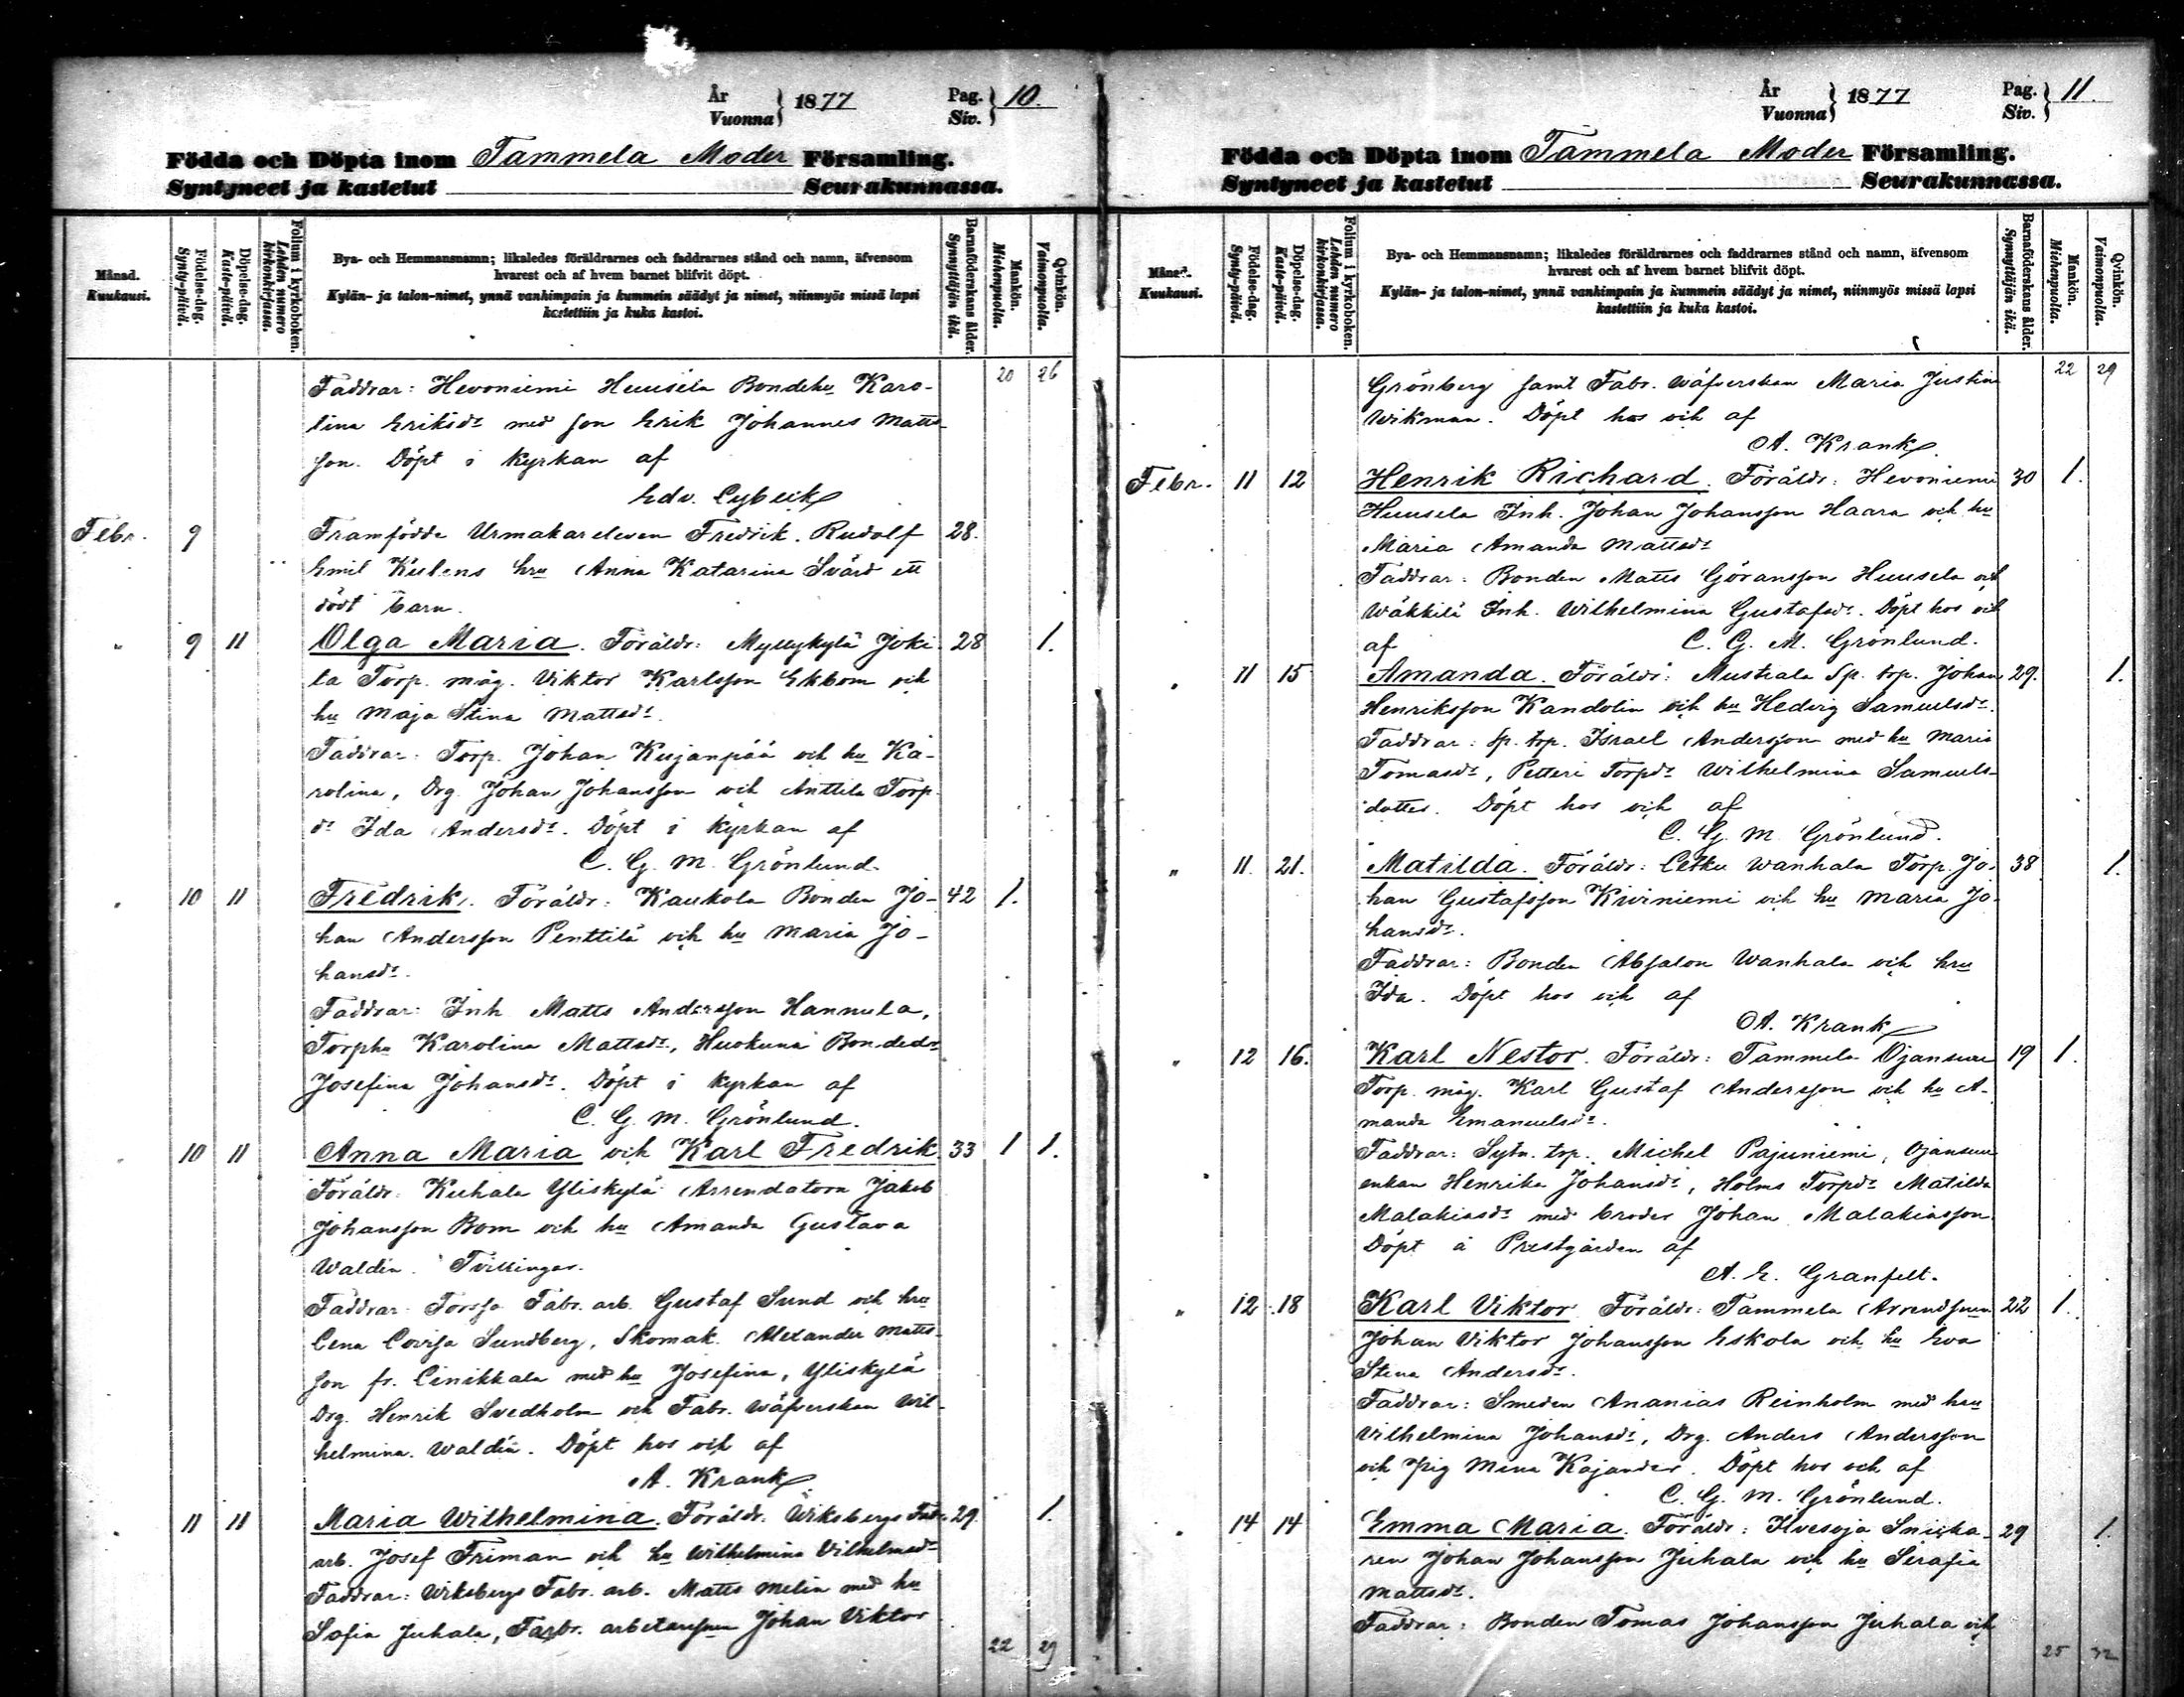 År
Vuonna } 1877
Pag.
Siv. } 10.
Födda och Döpta inom Tammela Moder Församling.
Syntyneet ja kastetut Seurakunnassa.
Månad.
Kuukausi.
Födelse-dag.
Synty-päivä.
Döpelse-dag.
Kaste-päivä.
Folium i kyrkoboken.
Lehden numero kirkonkirjassa.
Bya- och Hemmansnamn; likaledes föräldrarnes och faddrarnes stånd och namn, äfvensom
hvarest och af hvem barnet blifvit döpt.
Kylän- ja talon-nimet, ynnä vanhimpain ja kummein säädyt ja nimet, niinmyös missä lapsi
kastettiin ja kuka kastoi.
Barnaföderskans ålder.
Synnyttäjän ikä.
Mankön.
Miehenpuolta.
Qvinkön.
Vaimonpuolta.
Faddrar: Hevoniemi Huusela Bondehu Karo- 20 26
lina Eriksdr med son Erik Johannes Matts-
son. Döpt i kyrkan af
Edv. Lybeck
Febr. 9 Framfödde Urmakareleven Fredrik Rudolf 28.
Emil Kulens hru Anna Katarina Svärd ett
dödt barn.
" 9 11 Olga Maria. Föräldr: Myllykylä Joki- 28 1.
la Torp. måg. Viktor Karlsson Ekbom och
hu Maja Stina Mattsdr.
Faddrar: Torp. Johan Kujanpää och hu Ka-
rolina, Drg. Johan Johansson och Anttila Torp.
dr Ida Andersdr. Döpt i kyrkan af
C. G. M. Grönlund.
" 10 11 Fredrik. Föräldr: Kaukola Bonden Jo- 42 1.
han Andersson Penttilä och hu Maria Jo-
hansdr.
Faddrar: Inh. Matts Andersson Hannula,
Torphu Karolina Mattsdr, Huokuna Bondedr
Josefina Johansdr. Döpt i kyrkan af
C. G. M. Grönlund.
" 10 11 Anna Maria och Karl Fredrik. 33 1 1.
Föräldr: Kuhala Yliskylä Arrendatorn Jakob
Johansson Bom och hu Amanda Gustava
Waldin. Tvillingar.
Faddrar: Forssa Fabr. arb. Gustaf Sund och hru
Lena Lovisa Sundberg, Skomak. Alexander Matts-
son fr. Linikkala med hu Josefina, Yliskylä
Drg. Henrik Svedholm och Fabr. wäfverskan Wil-
helmina Waldin. Döpt hos och af
A. Krank.
" 11 11 Maria Wilhelmina. Föräldr: Wiksbergs Fabr. 29. 1.
arb. Josef Friman och hu Wilhelmina Vilhelmsdr
Faddrar: Wiksbergs Fabr. arb. Matts Melin med hu
Sofia Juhala, Fabr. arbetaresonen Johan Viktor
22 29
År
Vuonna } 1877
Pag.
Siv. } 11.
Födda och Döpta inom Tammela Moder Församling.
Syntyneet ja kastetut Seurakunnassa.
Månad.
Kuukausi.
Födelse-dag.
Synty-päivä.
Döpelse-dag.
Kaste-päivä.
Folium i kyrkoboken.
Lehden numero kirkonkirjassa.
Bya- och Hemmansnamn; likaledes föräldrarnes och faddrarnes stånd och namn, äfvensom
hvarest och af hvem barnet blifvit döpt.
Kylän- ja talon-nimet, ynnä vanhimpain ja kummein säädyt ja nimet, niinmyös missä lapsi
kastettiin ja kuka kastoi.
Barnaföderskans ålder.
Synnyttäjän ikä.
Mankön.
Miehenpuolta.
Qvinkön.
Vaimonpuolta.
Grönberg samt Fabr. wäfverskan Maria Justina 22 29
Wikman. Döpt hos och af
A. Krank.
Febr. 11 12 Henrik Richard. Föräldr: Hevoniemi 30 1.
Huusela Inh. Johan Johansson Haara och hu
Maria Amanda Mattsdr
Faddrar: Bonden Matts Göransson Huusela och
Wäkkilä Inh. Wilhelmina Gustafsdr. Döpt hos och
af C. G. M. Grönlund.
" 11 15 Amanda. Föräldr: Mustiala Sp. trp. Johan 29. 1.
Henriksson Kandolin och hu Hedvig Samuelsdr.
Faddrar: Sp. trp. Israel Andersson med hu Maria
Tomasdr, Petteri Torpdr Wilhelmina Samuels-
dotter. Döpt hos och af
C. G. M. Grönlund.
" 11. 21. Matilda. Föräldr: Letku Wanhala Torp. Jo- 38 1.
han Gustafsson Kiviniemi och hu Maria Jo-
hansdr.
Faddrar: Bonden Absalon Wanhala och hru
Ida. Döpt hos och af
A. Krank
" 12 16. Karl Nestor. Föräldr: Tammela Ojansuu 19 1.
Torp. måg. Karl Gustaf Andersson och hu A-
manda Emanuelsdr.
Faddrar: Sytn. trp. Michel Pajuniemi, Ojansuu
enkan Henrika Johansdr, Holms Torpdr Matilda
Malakiasdr med broder Johan Malakiasson.
Döpt å Prestgården af
A. E. Granfelt.
" 12 18 Karl Viktor. Föräldr: Tammela Arrendsonen 22 1.
Johan Viktor Johansson Eskola och hu Eva
Stina Andersdr.
Faddrar: Smeden Ananias Reinholm med hru
Vilhelmina Johansdr, Drg. Anders Andersson
och Pig. Mina Kajander. Döpt hos och af
C. G. M. Grönlund.
" 14 14 Emma Maria. Föräldr: Ilvesoja Snicka- 29 1.
ren Johan Johansson Juhala och hu Serafia
Mattsdr.
Faddrar: Bonden Tomas Johansson Juhala och
25 32